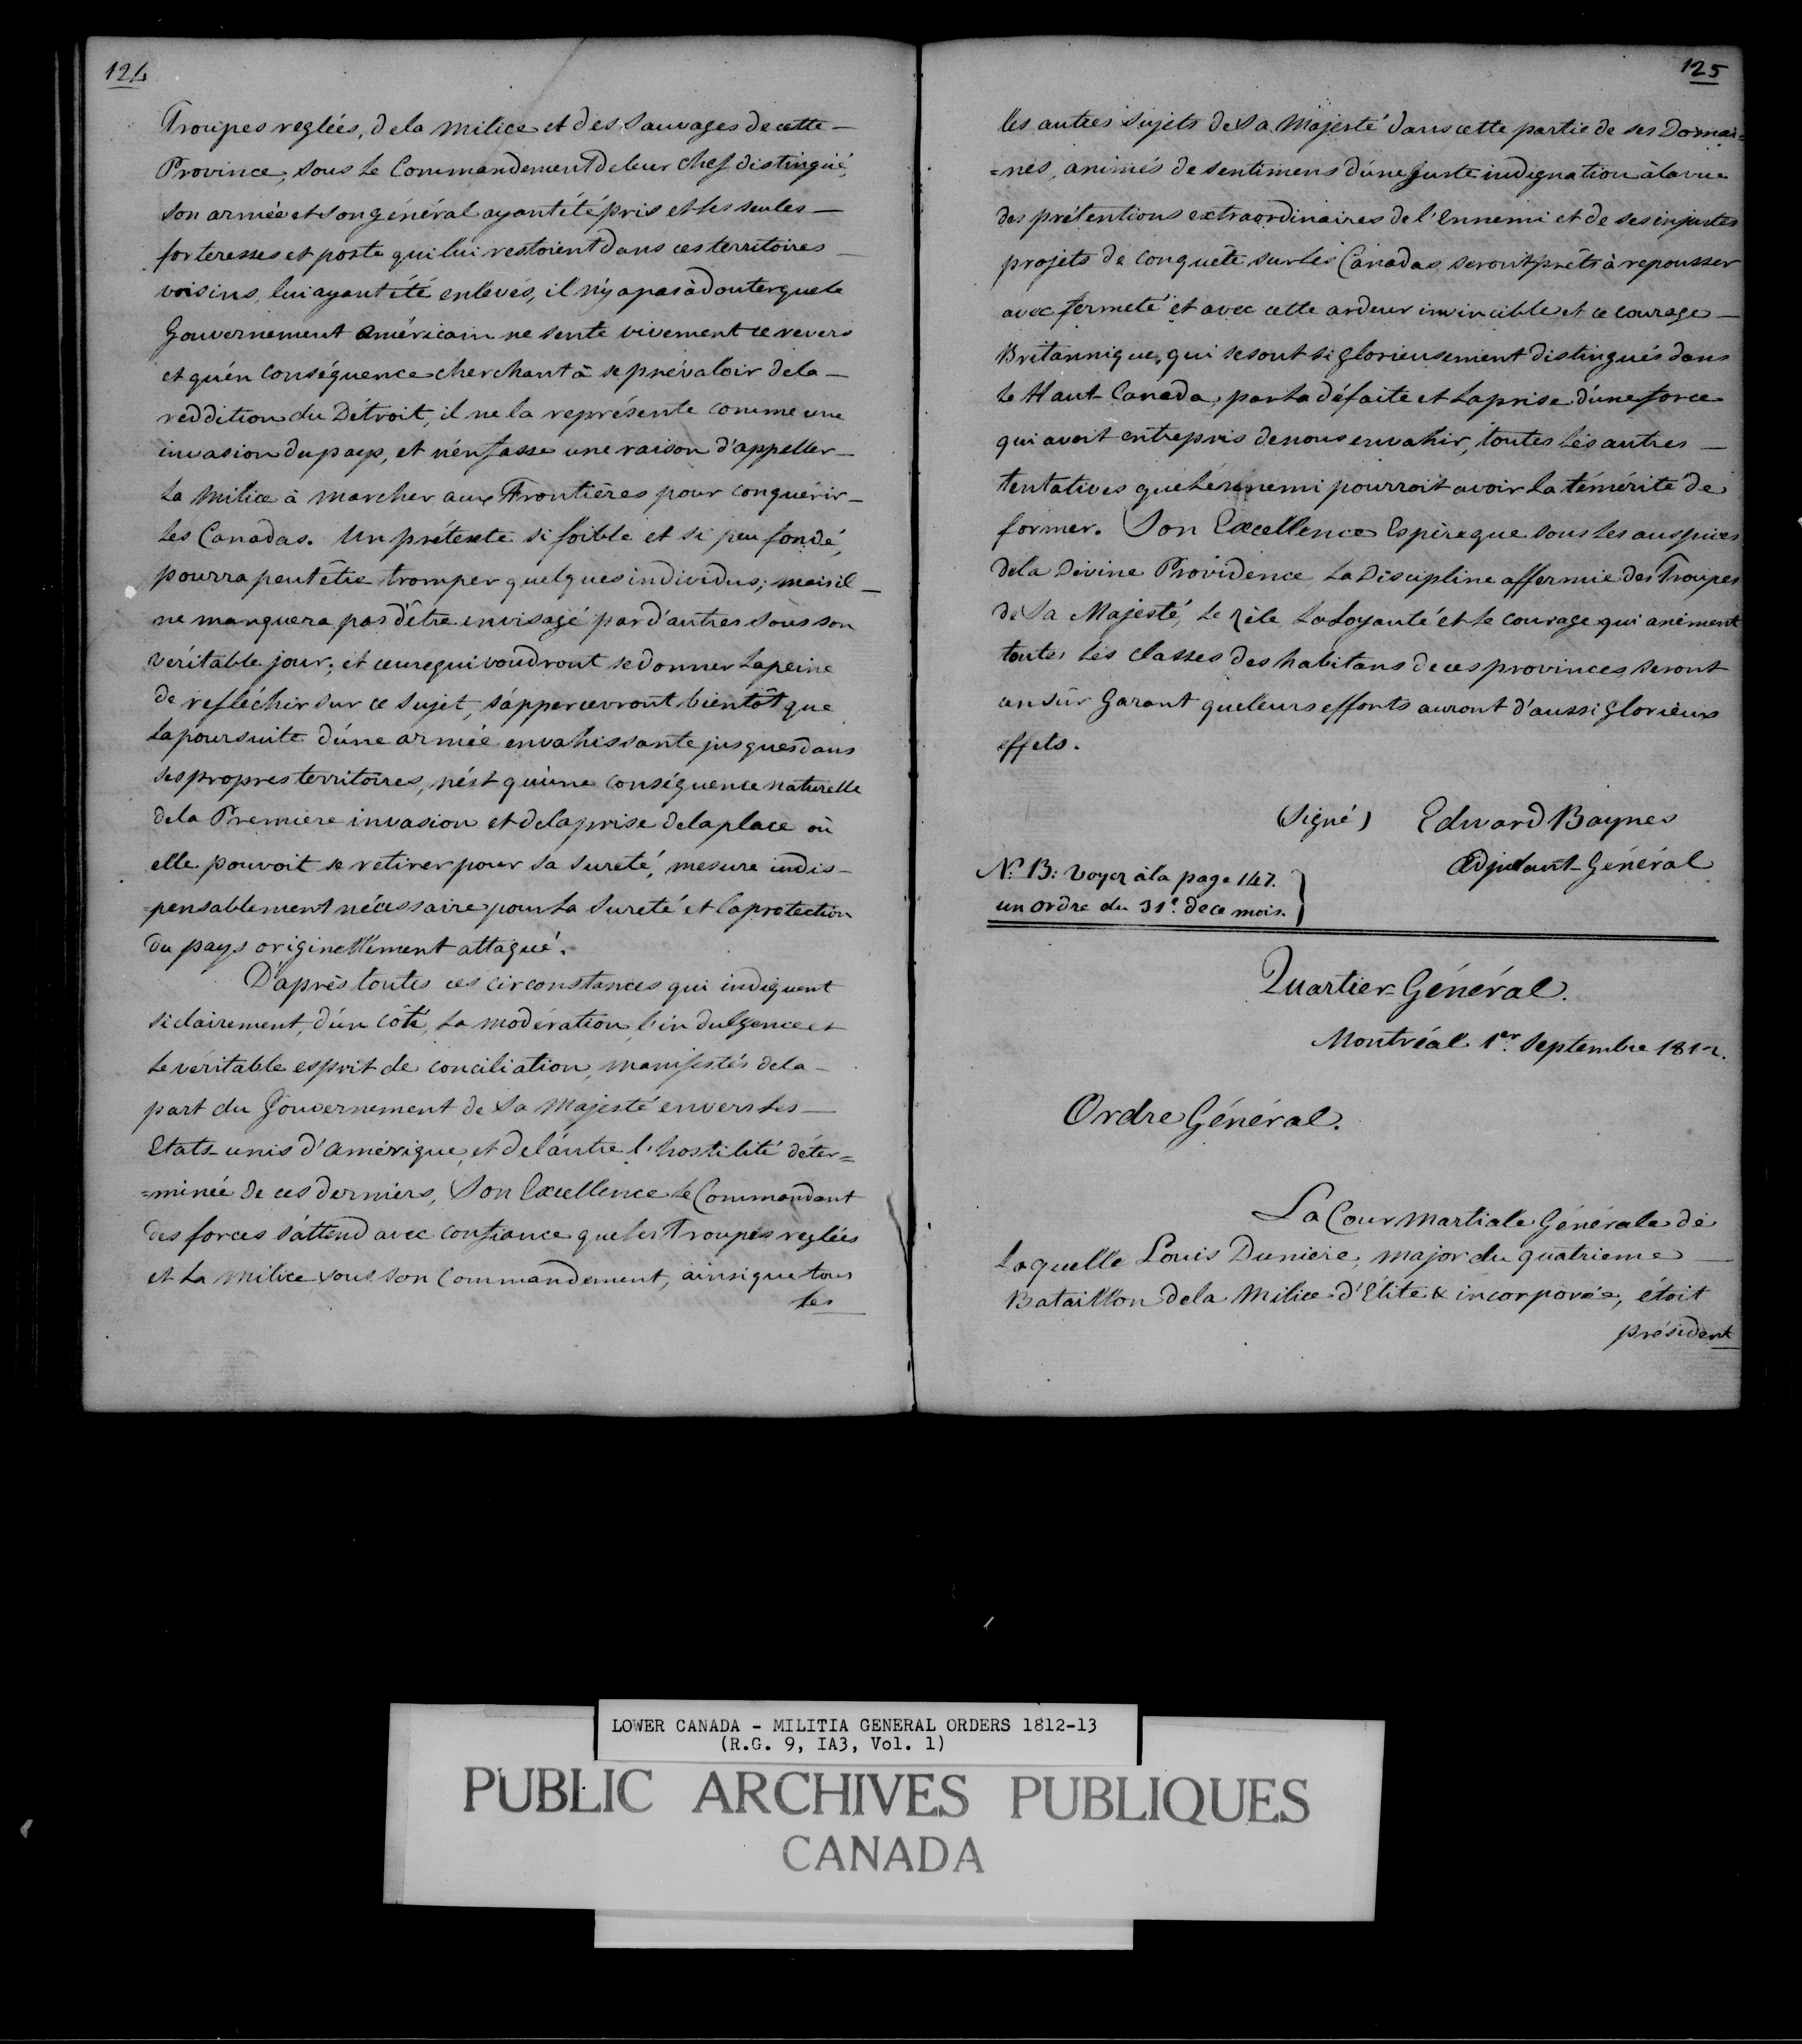 124
Troupes reglées, de la Milice et des Sauvages de cette —
Province, sous le Commandement de leur chef distingué,
son armée et son général ayant été pris et les seules —
forteresses et poste qui lui restoient dans ces territoires —
voisins, lui ayant été enlevés, il n'y a pas à douter que le
Gouvernement américain ne sente vivement ce revers
et qu'en conséquence cherchant à se prévaloir de la —
reddition du Détroit, il ne la représente comme une
invasion du pays, et n'en fasse une raison d'appeller —
la Milice à marcher aux Frontières pour conquérir —
les Canadas. Un prétexte si foible et si peu fondé,
pourra peut être tromper quelques individus; mais il —
ne manquera pas d'être envisagé par d'autres sous son
véritable jour; et ceux qui voudront se donner la peine
de refléchir sur ce sujet, s'appercevront bientôt que
la poursuite d'une armée envahissante jusques dans
ses propres territoires, n'est qu'une conséquence naturelle
de la Premiere invasion et de la prise de la place où
elle pouvoit se retirer pour sa sureté, mesure indis-
-pensablement nécessaire pour la sureté et la protection
du pays originellement attaqué.
D'après toutes ces circonstances qui indiquent
si clairement, d'un côté, la modération, l'indulgence et
le véritable esprit de conciliation, manifestés de la —
part du Gouvernement de Sa Majesté envers les —
Etats-unis d'amérique, et de l'autre l'hostilité déter=
=minée de ces derniers, Son Excellence le Commandant
des forces s'attend avec confiance que les Troupes reglées
et la milice sous son Commandement, ainsi que tous
les
125
les autres Sujets de Sa Majesté dans cette partie de ses Domai=
=nes, animés de sentimens d'une juste indignation à la vue
des prétentions extraordinaires de l'Ennemi et de ses injustes
projets de conquête sur les Canadas, seront prêts à repousser
avec fermeté et avec cette ardeur invincible et ce courage —
Britannique, qui se sont si glorieusement distingués dans
le Haut-Canada, par la défaite et la prise d'une force
qui avoit entrepris de nous envahir, toutes les autres —
tentatives que l'ennemi pourroit avoir la témérité de
former. Son Excellence Espère que sous les auspices
de la Divine Providence, la Discipline affermie des Troupes
de Sa Majesté, le zèle, la Loyauté et le courage qui animent
toutes les classes des habitans de ces provinces seront
un sûr Garant que leurs efforts auront d'aussi glorieux
effets.
(Signé) Edward Baynes
Adjudant-Général
N: B: Voyez à la page 147.
un ordre du 31e. de ce mois.
Quartier-Général.
Montréal 1er. Septembre 1812.
Ordre Général.
La Cour Martiale Générale de
laquelle Louis Duniere, major du quatrieme —
Bataillon de la Milice d'Élite & incorporée, étoit
président
LOWER CANADA - MILITIA GENERAL ORDERS 1812-13
(R.G. 9, IA3, Vol. 1)
PUBLIC ARCHIVES PUBLIQUES
CANADA